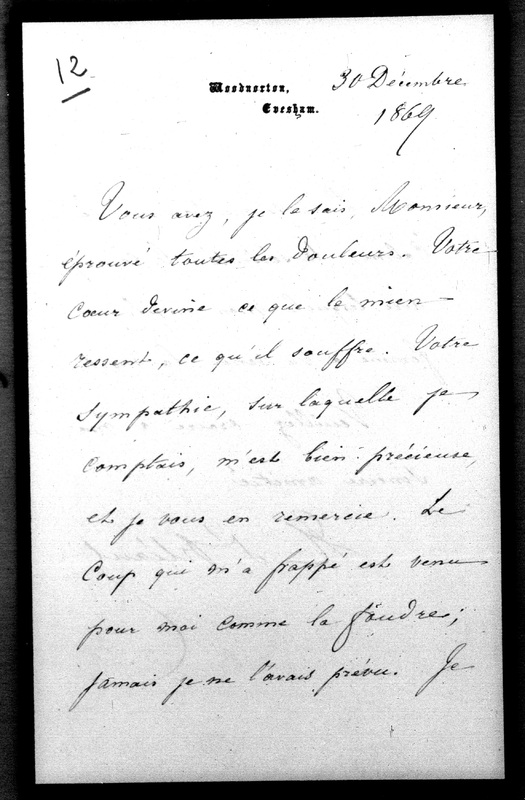 12
Woodnorton,
Evesham.
30 Décembre
1869
Vous avez, je le sais, Monsieur,
éprouvé toutes les douleurs. Votre
cœur devine ce que le mien
ressent, ce qu'il souffre. Votre
sympathie, sur laquelle je
comptais, m'est bien précieuse,
et je vous en remercie. Le
coup qui m'a frappé est venu
pour moi comme la foudre;
jamais je ne l'avais prévu. Je